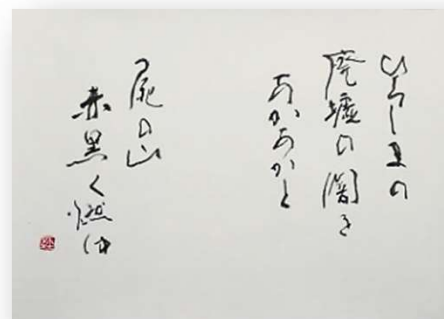 ひろしまの
廃墟の闇を
あかあかと
屍の山
赤黒く燃ゆ